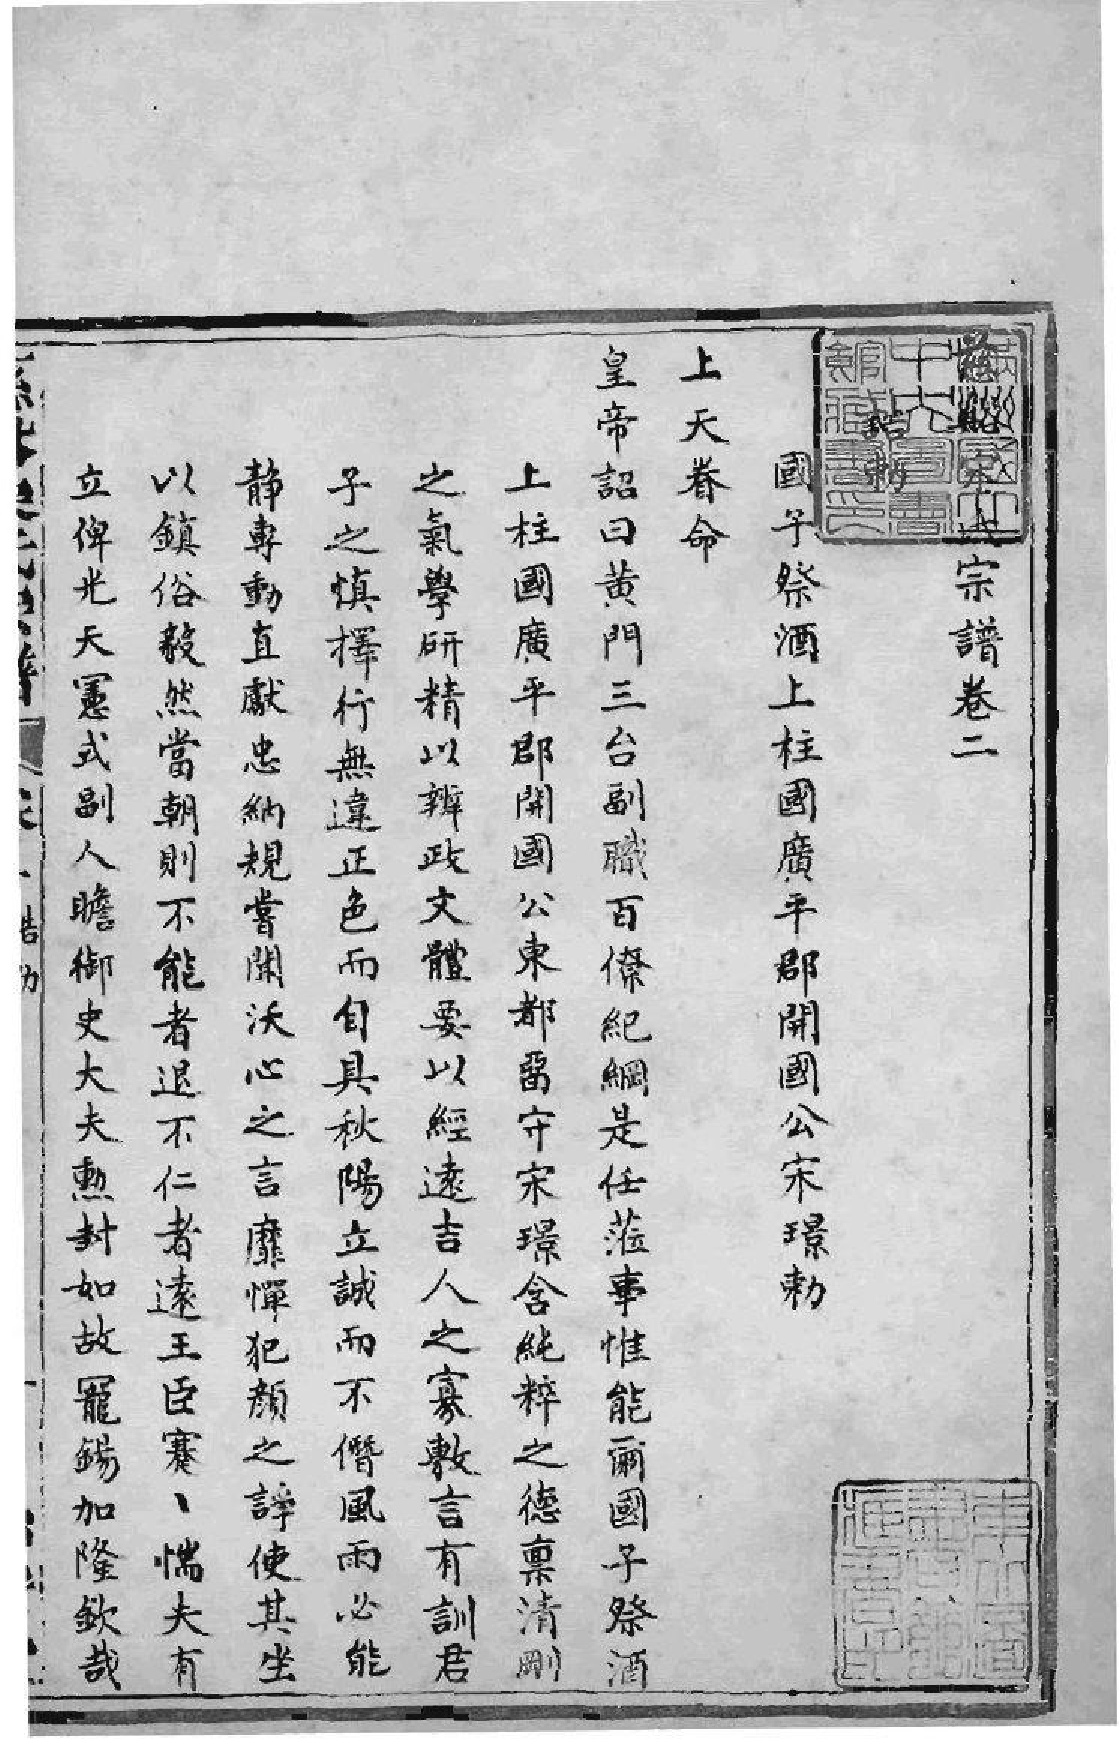 慈谿宋氏宗譜卷二
誥勅
國子祭酒上柱國廣平郡開國公宋璟勅
上天眷命
皇帝詔曰黃門三台副職百僚紀綱是任蒞事惟能爾國子祭酒
上柱國廣平郡開國公東都畱守宋璟含純粹之德禀清剛
之氣學研精以辨政文體要以經遠吉人之寡敷言有訓君
子之慎擇行無違正色而自具秋陽立誠而不僭風雨必能
靜專動直獻忠納規嘗開沃心之言靡憚犯顏之諍使其坐
以鎮俗毅然當朝則不能者退不仁者遠王臣蹇丶惴夫有
立俾光天憲式副人瞻御史大夫勲封如故寵錫加隆欽哉